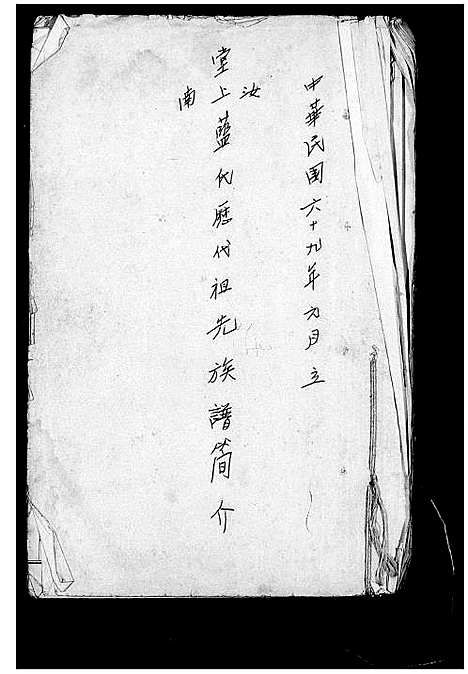 中華民国六十九年六月立
汝南
堂上藍氏歷代祖先族譜简介